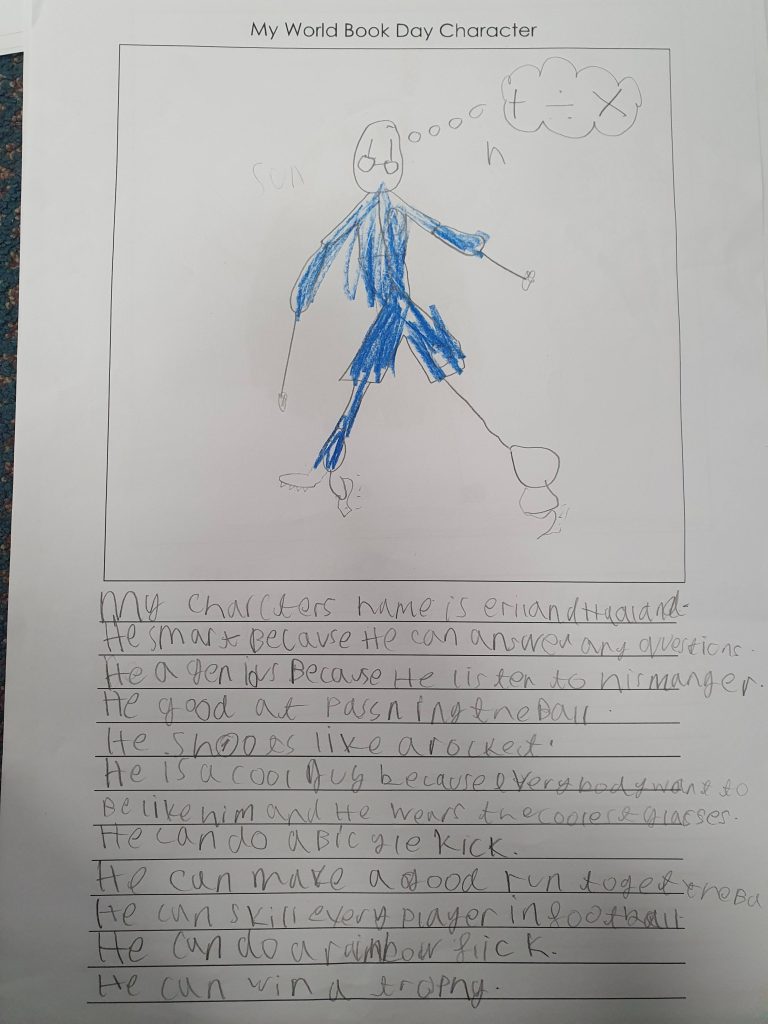 My World Book Day Character
+ ÷ ×
n
sun
My charcters name is erilandHaaland.
He smart Because He can answer any questions.
He a genius Because He listen to his manger.
He good at passning the Ball.
He shoots like a rocket.
He is a cool guy because everybody want to
Be like him and He wears the coolest glasses.
He can do a Bicycle kick.
He can make a good run to get the Ba
He can skill every player in football
He can do a rainbow flick.
He can win a trophy.